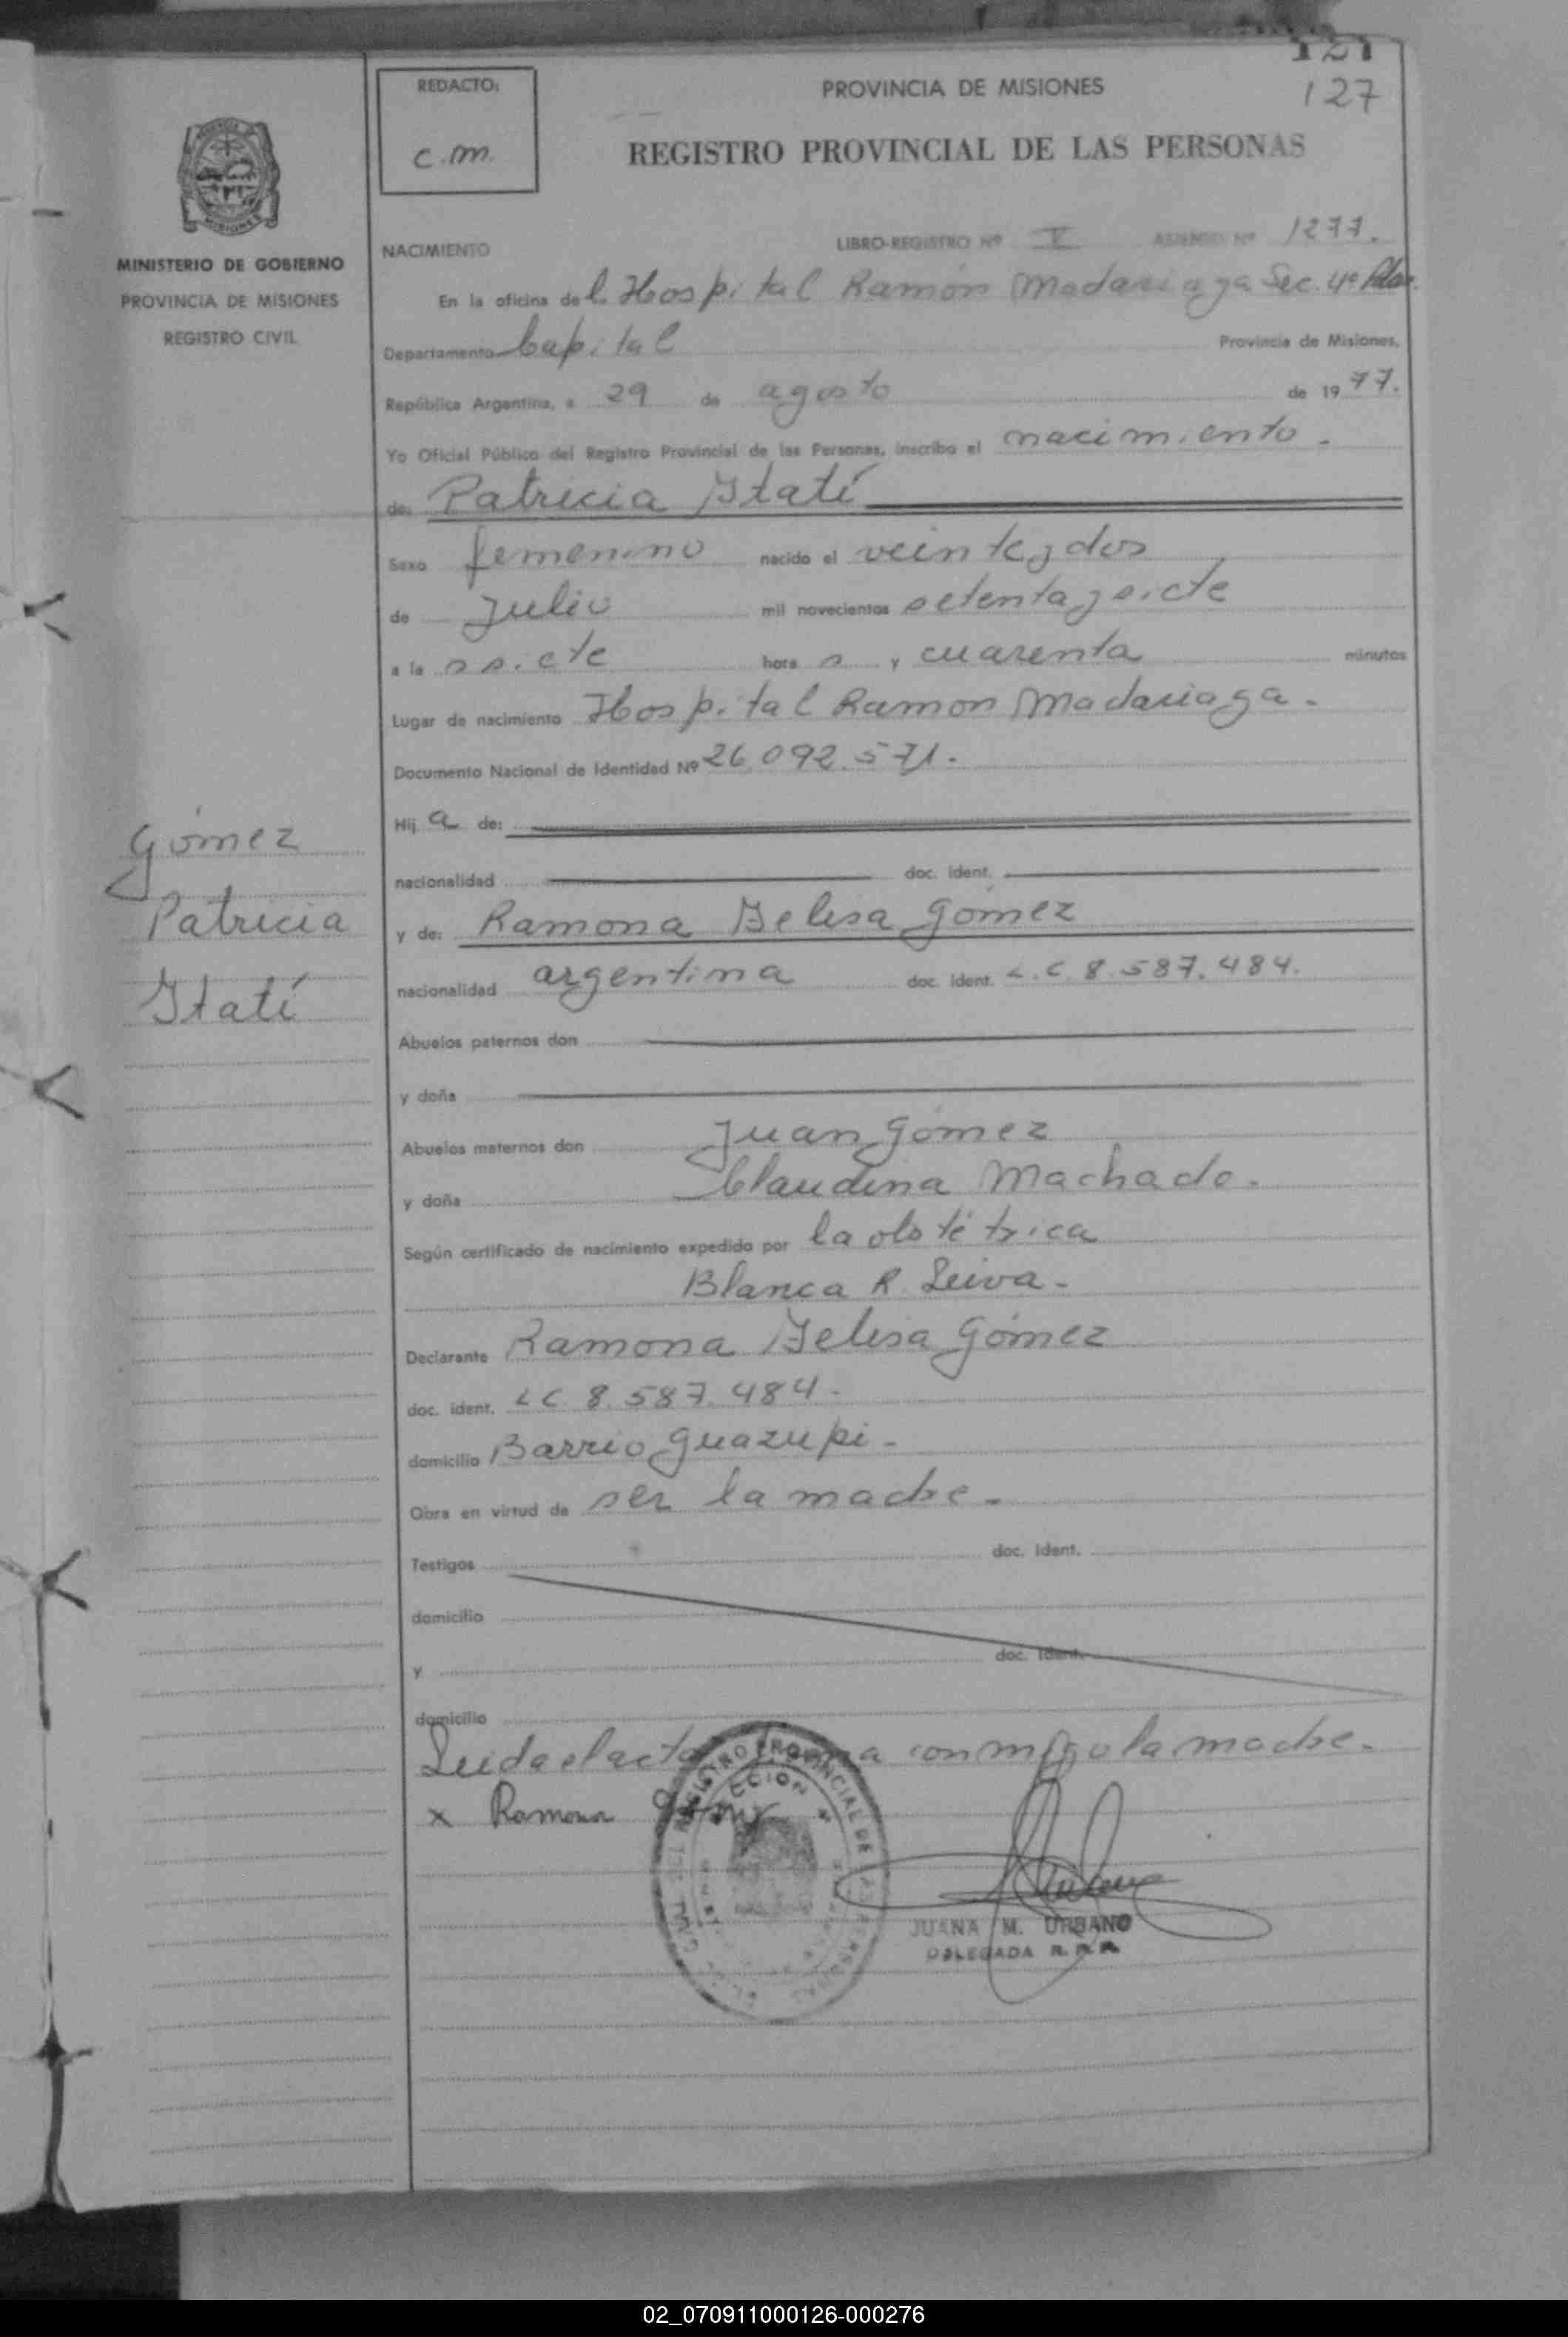 127
127
REDACTO:
c.m.
PROVINCIA DE MISIONES
REGISTRO PROVINCIAL DE LAS PERSONAS
MISIONES
MINISTERIO DE GOBIERNO
PROVINCIA DE MISIONES
REGISTRO CIVIL
NACIMIENTO LIBRO-REGISTRO Nº V ASIENTO Nº 1277.
En la oficina del Hospital Ramón Madariaga Sec. 4º
Departamento Capital Provincia de Misiones,
República Argentina, a 29 de agosto de 1977.
Yo Oficial Público del Registro Provincial de las Personas, inscribo el nacimiento.
de: Patricia Itatí
Sexo femenino nacido el veinte y dos
de Julio mil novecientos setenta y siete
a la s siete hora s y cuarenta minutos
Lugar de nacimiento Hospital Ramon Madariaga.
Documento Nacional de Identidad Nº 26.092.571.
Hij a de:
nacionalidad doc. ident.
Gómez
Patricia
Itatí
y de: Ramona Gómez
nacionalidad argentina doc. ident. L.C 8.587.484.
Abuelos paternos don
y doña
Abuelos maternos don Juan Gómez
y doña Claudina Machado.
Según certificado de nacimiento expedido por la obstétrica
Blanca R. Leiva-
Declarante Ramona Gómez
doc. ident. LC 8.587.484-
domicilio Barrio Guazupi-
Obra en virtud de ser la madre.
Testigos doc. ident.
domicilio
y doc. ident.
domicilio
Leida el acta firma conmigo la madre.
x Ramona Gomez
REGISTRO PROVINCIAL DE LAS PERSONAS
SECCION 4ª
JUANA M. URBANO
DELEGADA R.P.P.
02_070911000126-000276